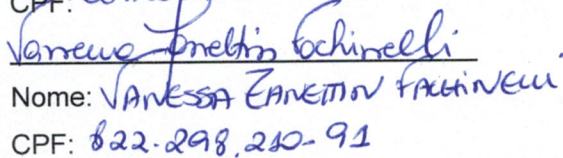 CPF:
Vanessa Zanettin Fachinelli
Nome: VANESSA ZANETTIN FACHINELLI
CPF: 822.298.210-91